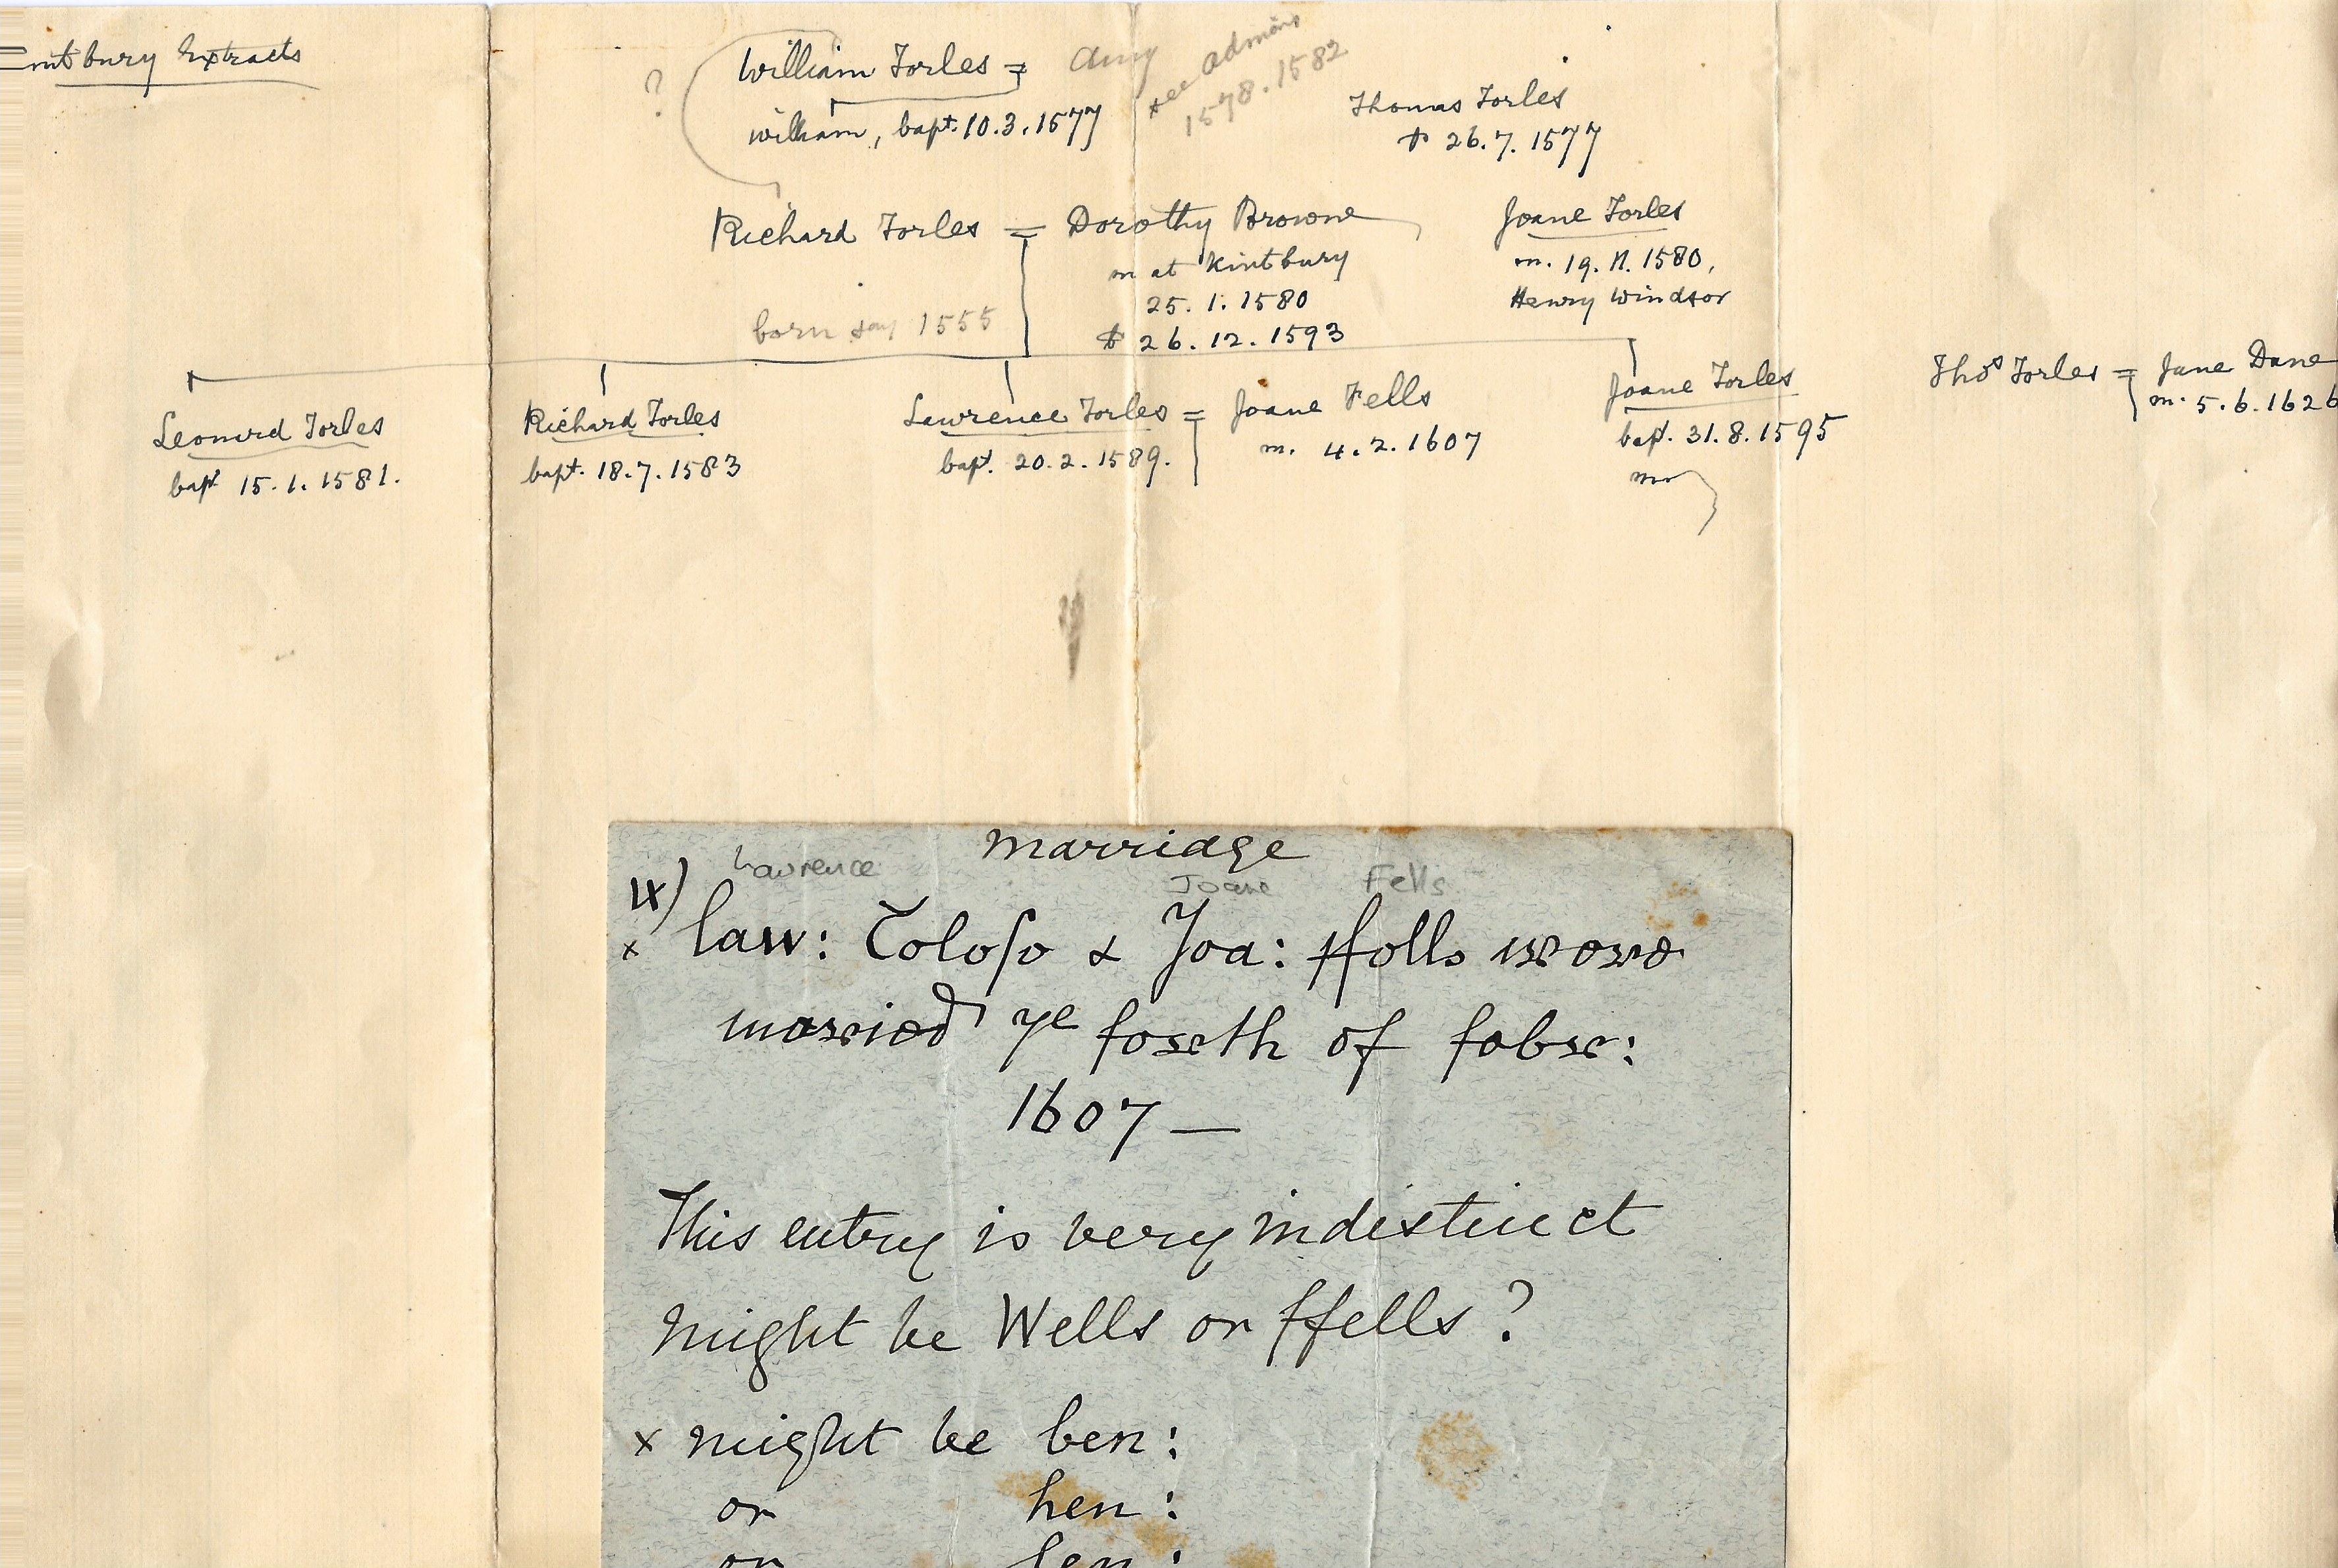 Kintbury Extracts
William Torles = Amy
see admons
1578.1582
?
william, bapt. 10.3.1577
Thomas Torles
26.7.1577
Richard Torles = Dorothy Browne
m at Kintbury
25.1.1580
26.12.1593
born say 1555
Joane Torles
m. 19.11.1580,
Henry Windsor
Leonard Torles
bapt 15.1.1581.
Richard Torles
bapt. 18.7.1583
Lawrence Torles = Joane Fells
bapt. 20.2.1589. m. 4.2.1607
Joane Torles
bapt. 31.8.1595
Thos Torles = Jane Dane
m. 5.6.1626
marriage
Lawrence Joane Fells
x law: Toloso & Joa: ffolls wore
married ye forth of fobr:
1607 —
This entry is very indistinct
might be Wells or ffells?
x might be ben:
or hen:
or len: